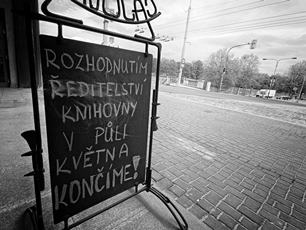 ROZHODNUTÍM
ŘEDITELSTVÍ
KNIHOVNY
V PŮLI
KVĚTNA
KONČÍME!